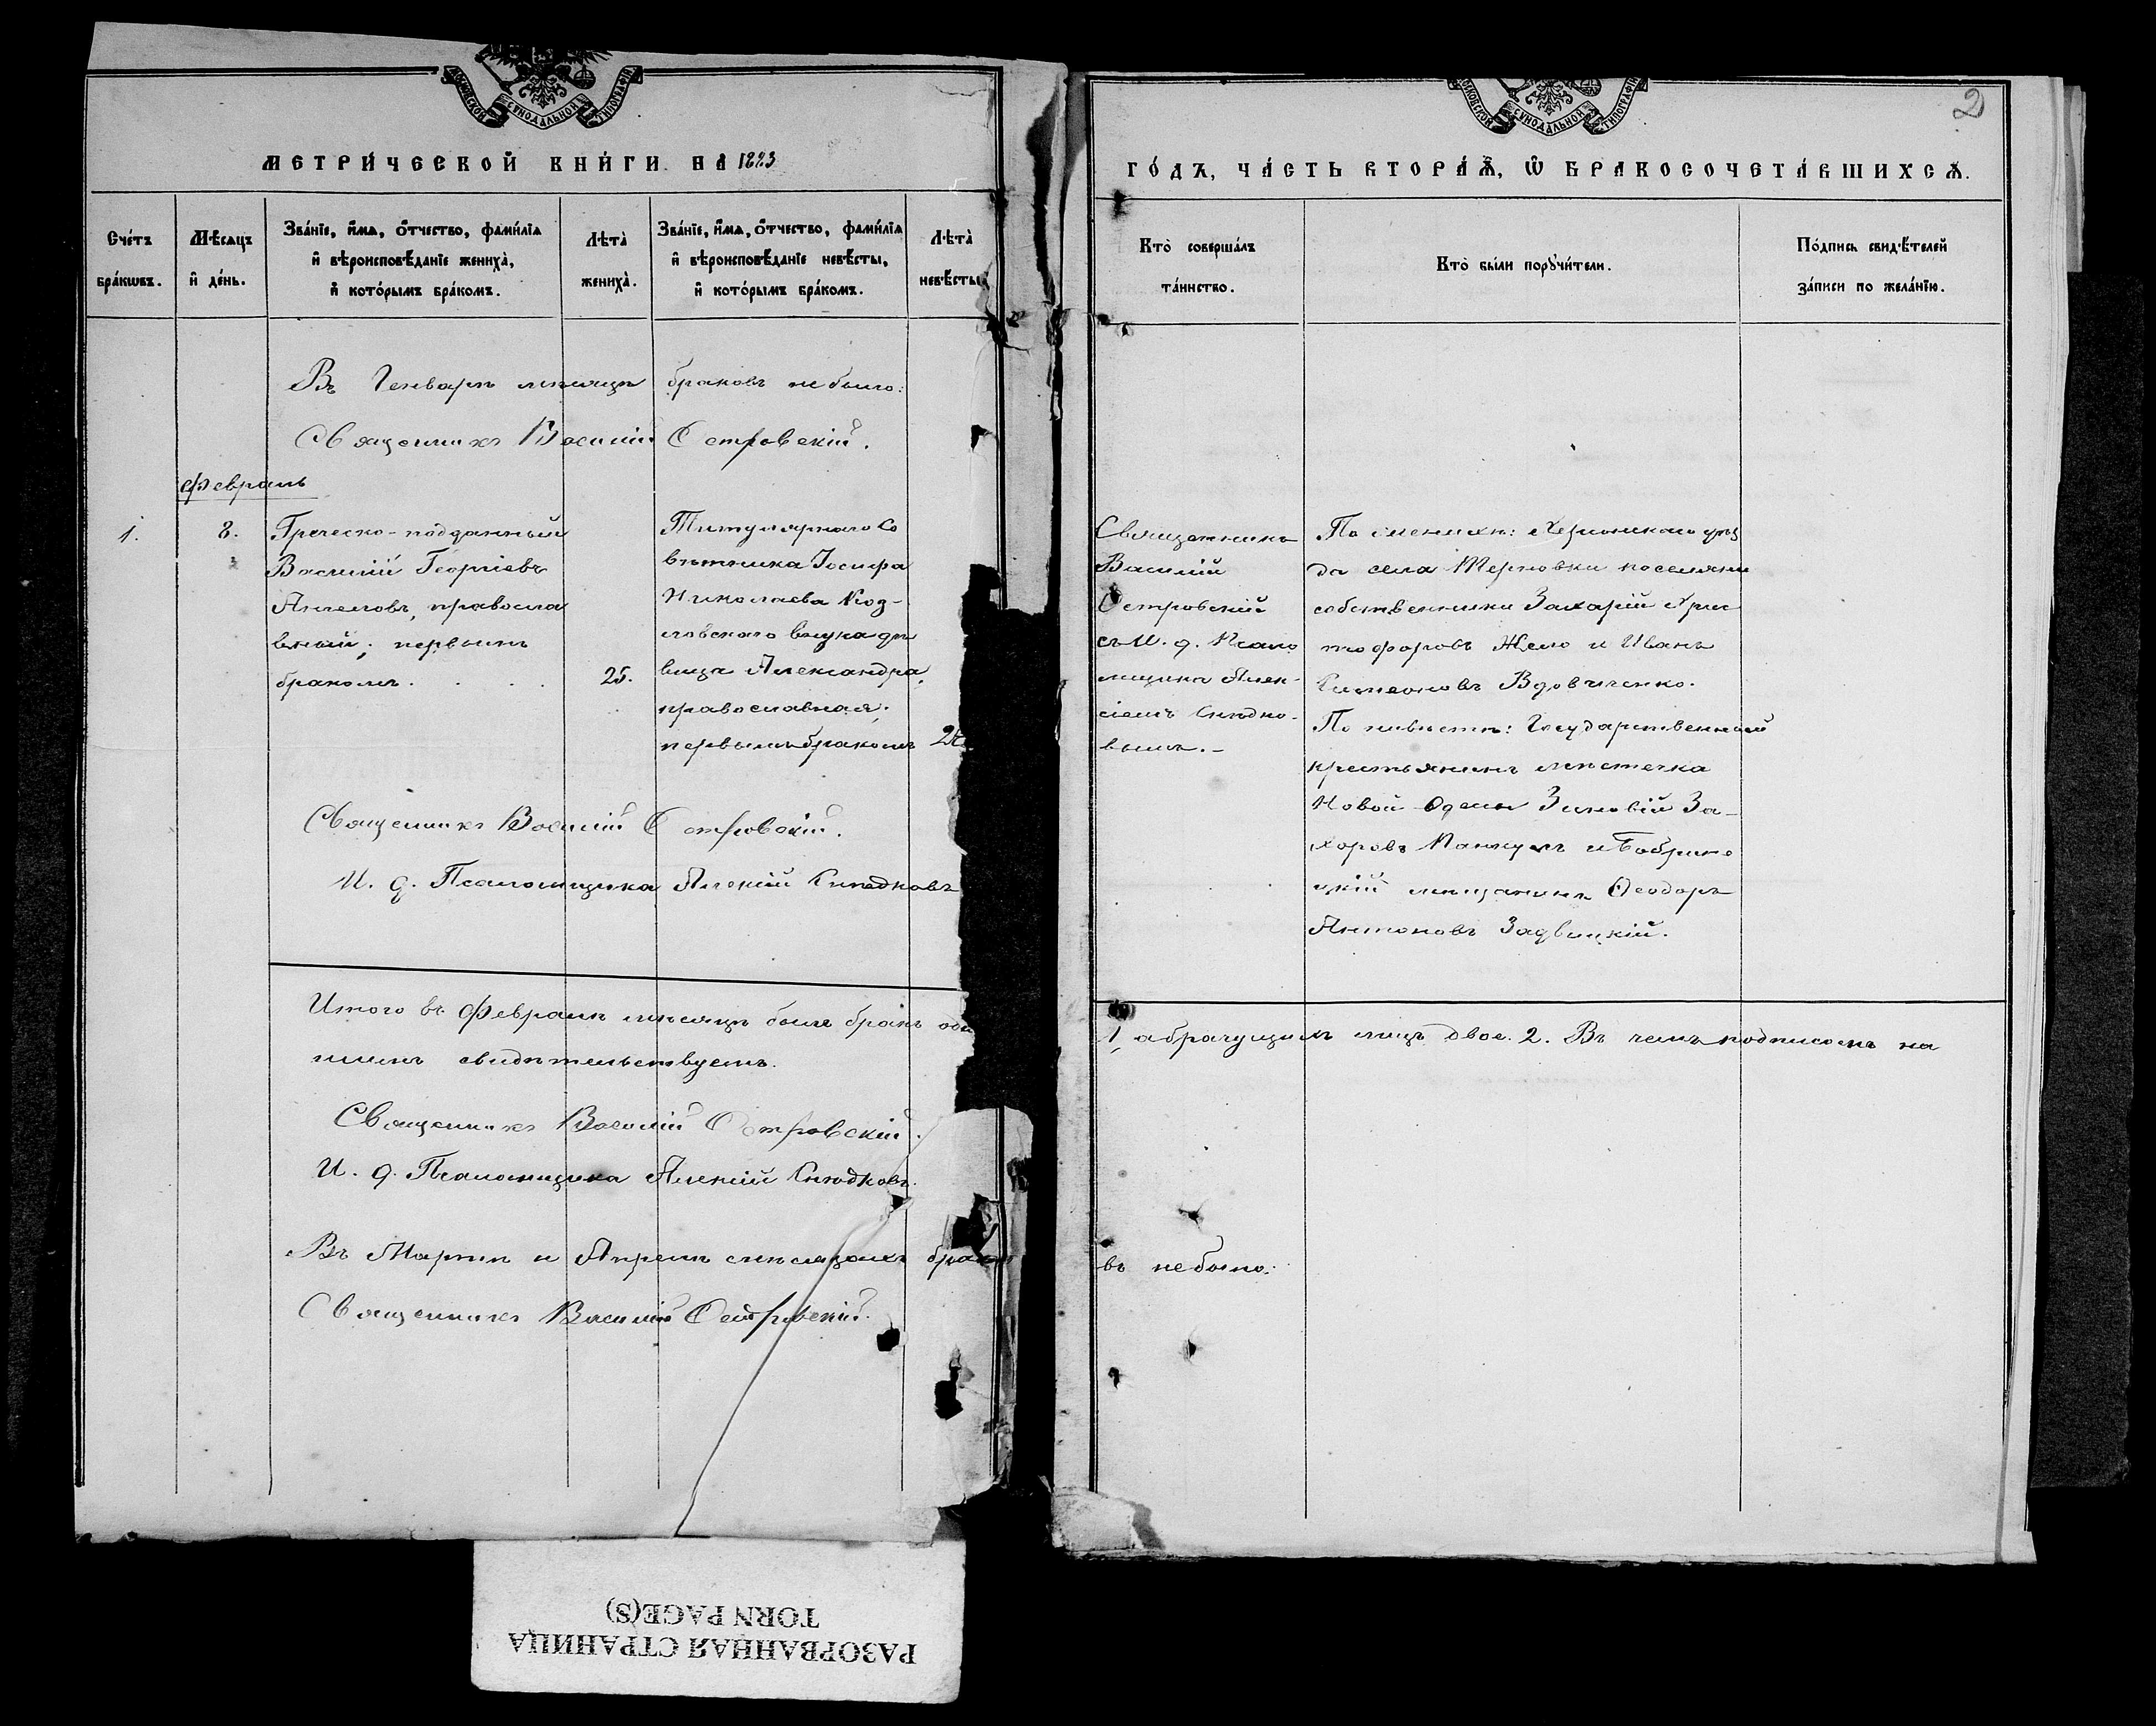 МОСКОВСКОЙ СИНОДАЛЬНОЙ ТИПОГРАФІИ
МЕТРИ́ЧЕСКОЙ КНИ́ГИ НА 1883
Сче́тъ бра́кωвъ.
Мѣ́сяцъ и҆ де́нь.
Зва́нїе, и҆́мѧ, ѻ҆́тчество, фамі́лїѧ
и҆ вѣроисповѣ́данїе жениха̀,
и҆ кото́рымъ бра́комъ.
Лѣта̀ жениха̀.
Зва́нїе, и҆́мѧ, ѻ҆́тчество, фамі́лїѧ
и҆ вѣроисповѣ́данїе невѣ́сты,
и҆ кото́рымъ бра́комъ.
Лѣта̀ невѣ́сты
Въ Генварѣ мѣсяцѣ браковъ не было:
Священникъ Василій Островскій.
Февраль
1.
8.
Греческо-подданный
Василій Георгіевъ
Ангеловъ, правосла
вный; первымъ
бракомъ. . . . 25.
Титулярнаго Со
вѣтника Іосифа
Николаева Коз-
ловскаго внука дѣ
вица Александра,
православная;
первымъ бракомъ
Священникъ Василій Островскій.
И. д. Псаломщика Алексій Снѣдковъ
Итого въ Февралѣ мѣсяцѣ былъ бракъ оди
нимъ свидѣтельствуемъ.
Священникъ Василій Островскій.
И. д. Псаломщика Алексій Снѣдковъ.
Въ Мартѣ и Апрѣлѣ мѣсяцахъ брако
Священникъ Василій Островскій.
МОСКОВСКОЙ СИНОДАЛЬНОЙ ТИПОГРАФІИ
2
ГО́ДЪ, ЧА́СТЬ ВТОРА́Ѧ, Ѡ҆ БРАКОСОЧЕТА́ВШИХСѦ.
Кто̀ соверша́лъ
та́инство.
Кто̀ бы́ли порꙋчи́тели.
По́дпись свидѣ́телей
за́писи по жела́нїю.
Священникъ
Василій
Островскій
съ И. д. Псало
мщика Алек-
сіемъ Снѣдко-
вымъ.-
По женихѣ: Херсонскаго уѣз
да села Терновки поселяне
собственники Захарій Хрис
тофоровъ Желю и Иванъ
Симеоновъ Вдовиченко.
По невѣстѣ: Государственный
крестьянинъ мѣстечка
Новой Одессы Зиновій За-
харовъ и Бобрине
цкій мѣщанинъ Ѳеодоръ
Антоновъ Задвицкій.
1, а брачущихъ лицъ двое. 2. Въ чемъ подписомъ на
въ не было:
РАЗОРВАННАЯ СТРАНИЦА
TORN PAGE(S)